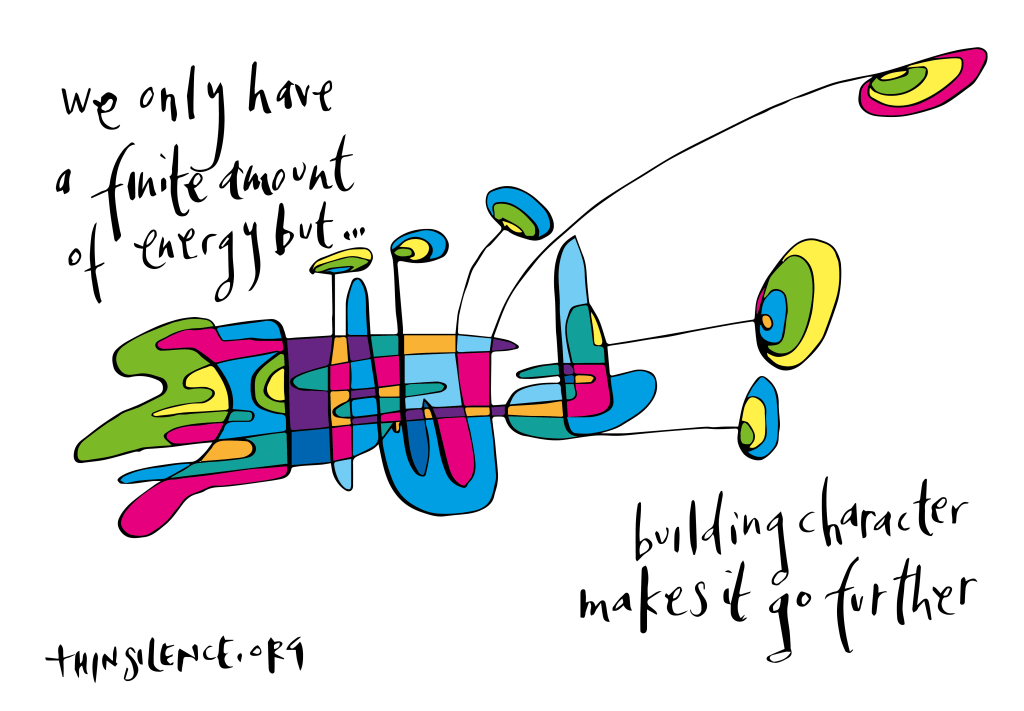 we only have
a finite amount
of energy but...
building character
makes it go further
THINSILENCE.ORG